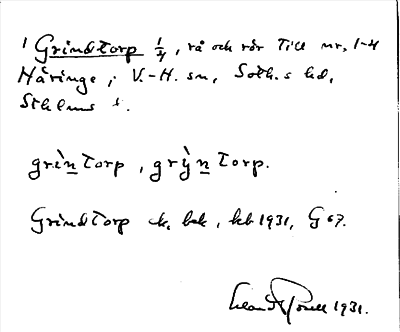 1 Grindtorp 1/4, rå och rör till nr. 1-4
Häringe, V.-H. sn, Soth.s hd,
Sthlms l.
grìntorp, grỳntorp.
Grindtorp ek. bok, kb 1931, G 67.
1931.